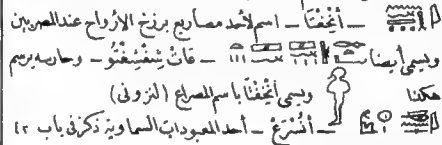 — أَنْخِفْتَا — اسم لأحد مصاريع برزخ الأرواح عند المصريين
ويسمى أيضا — قَاتْ شِفْشِفْتُو — وحارسه يرسم
هكذا ويسمى أَنْخِفْتَا باسم المصراع (لنزونى)
— أَنْسْرَعْ — أحد المعبودات السماوية ذكر فى باب ٤٢